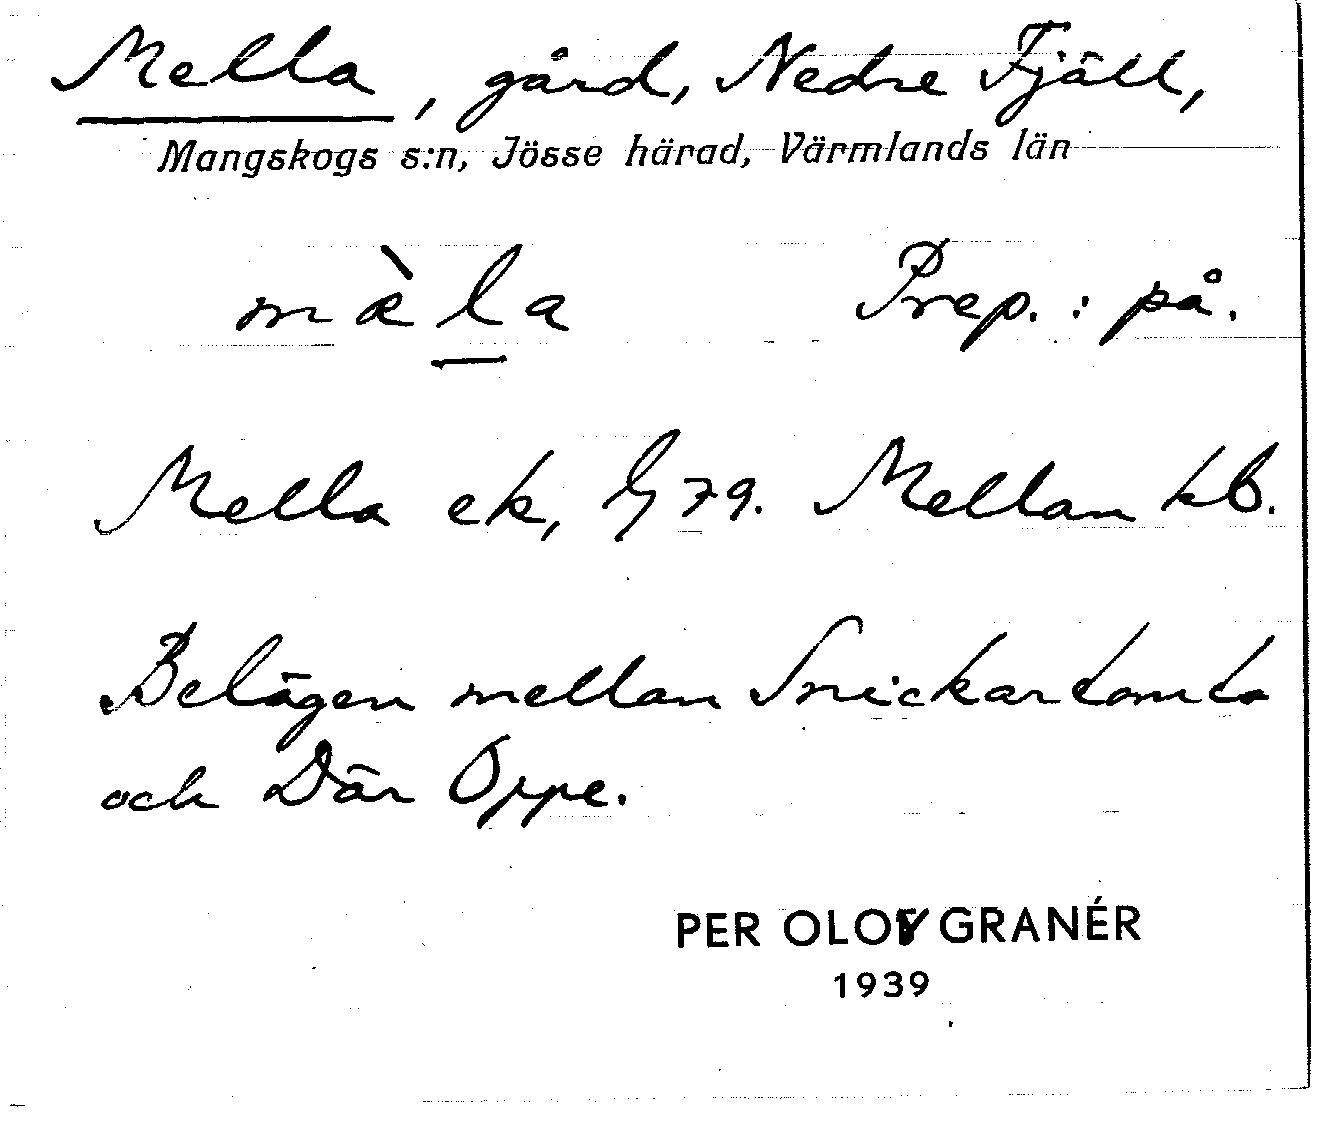 Mella, gård, Nedre Fjäll,
Mangskogs s:n, Jösse härad, Värmlands län
mæ̀la Prep.: på.
Mella ek, 79. Mellan kb.
Belägen mellan Snickartomta
och Där Oppe.
PER OLOV GRANÉR
1939